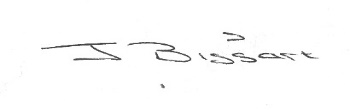 J Bissart